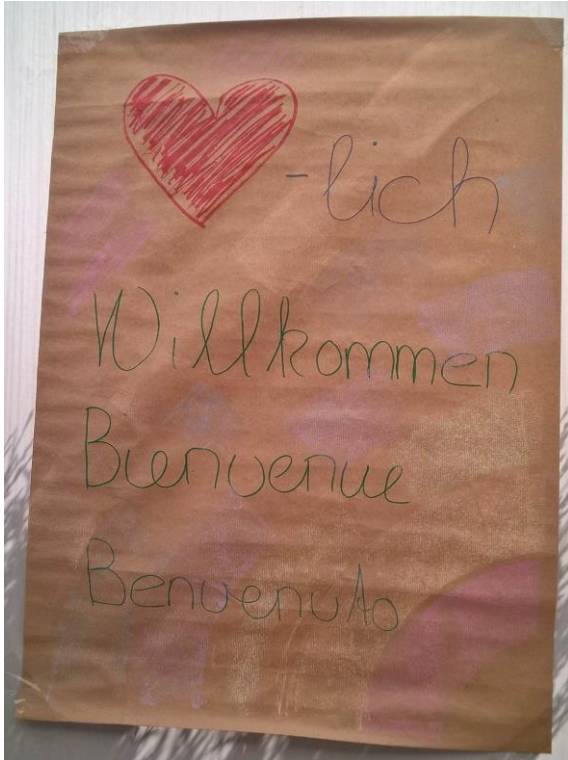 -lich
Willkommen
Bienvenue
Benvenuto